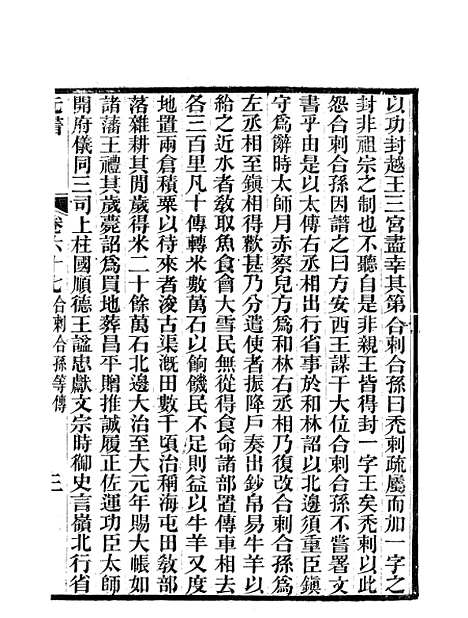 以功封越王三宮盡幸其第合剌合孫曰禿剌疏屬而加一字之
封非祖宗之制也不聽自是非親王皆得封一字王矣禿剌以此
怨合剌合孫因譖之曰方安西王謀干大位合剌合孫不嘗署文
書乎由是以太傅右丞相出行省事於和林詔以北邊須重臣鎭
守爲辭時太師月赤察兒方爲和林右丞相乃復改合剌合孫爲
左丞相至鎭相得歡甚乃分遣使者振降戶奏出鈔帛易牛羊以
給之近水者敎取魚食會大雪民無從得食命諸部置傳車相去
各三百里凡十傳轉米數萬石以餉饑民不足則益以牛羊又度
地置兩倉積粟以待來者浚古渠漑田數千頃治稱海屯田敎部
落雜耕其閒歲得米二十餘萬石北邊大治至大元年賜大帳如
諸藩王禮其歲薨詔爲買地葬昌平贈推誠履正佐運功臣太師
開府儀同三司上柱國順德王謚忠獻文宗時御史言嶺北行省
元書
卷六十七 合剌合孫等傳
三